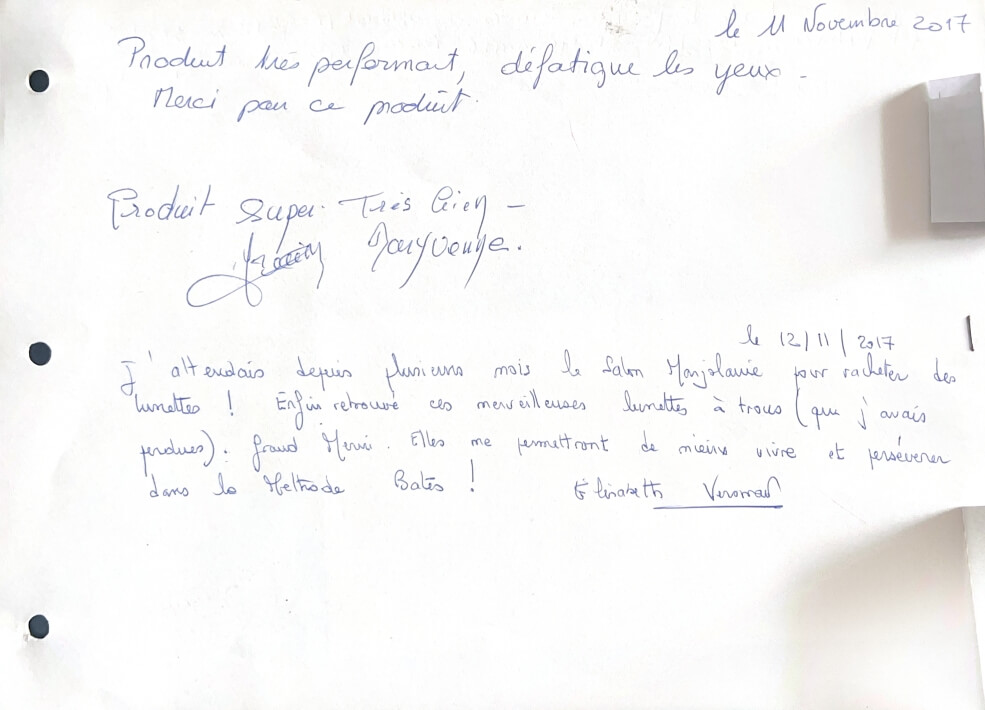 le 11 Novembre 2017
Produit très performant, défatigue les yeux -
Merci pour ce produit.
Produit super. Très bien -
Maryvonne.
le 12/11/2017
J'attendais depuis plusieurs mois le Salon Marjolaine pour racheter des
lunettes ! Enfin retrouvé ces merveilleuses lunettes à trous (que j'avais
perdues). Grand Merci. Elles me permettront de mieux vivre et persévérer
dans la Méthode Bates ! Elisabeth